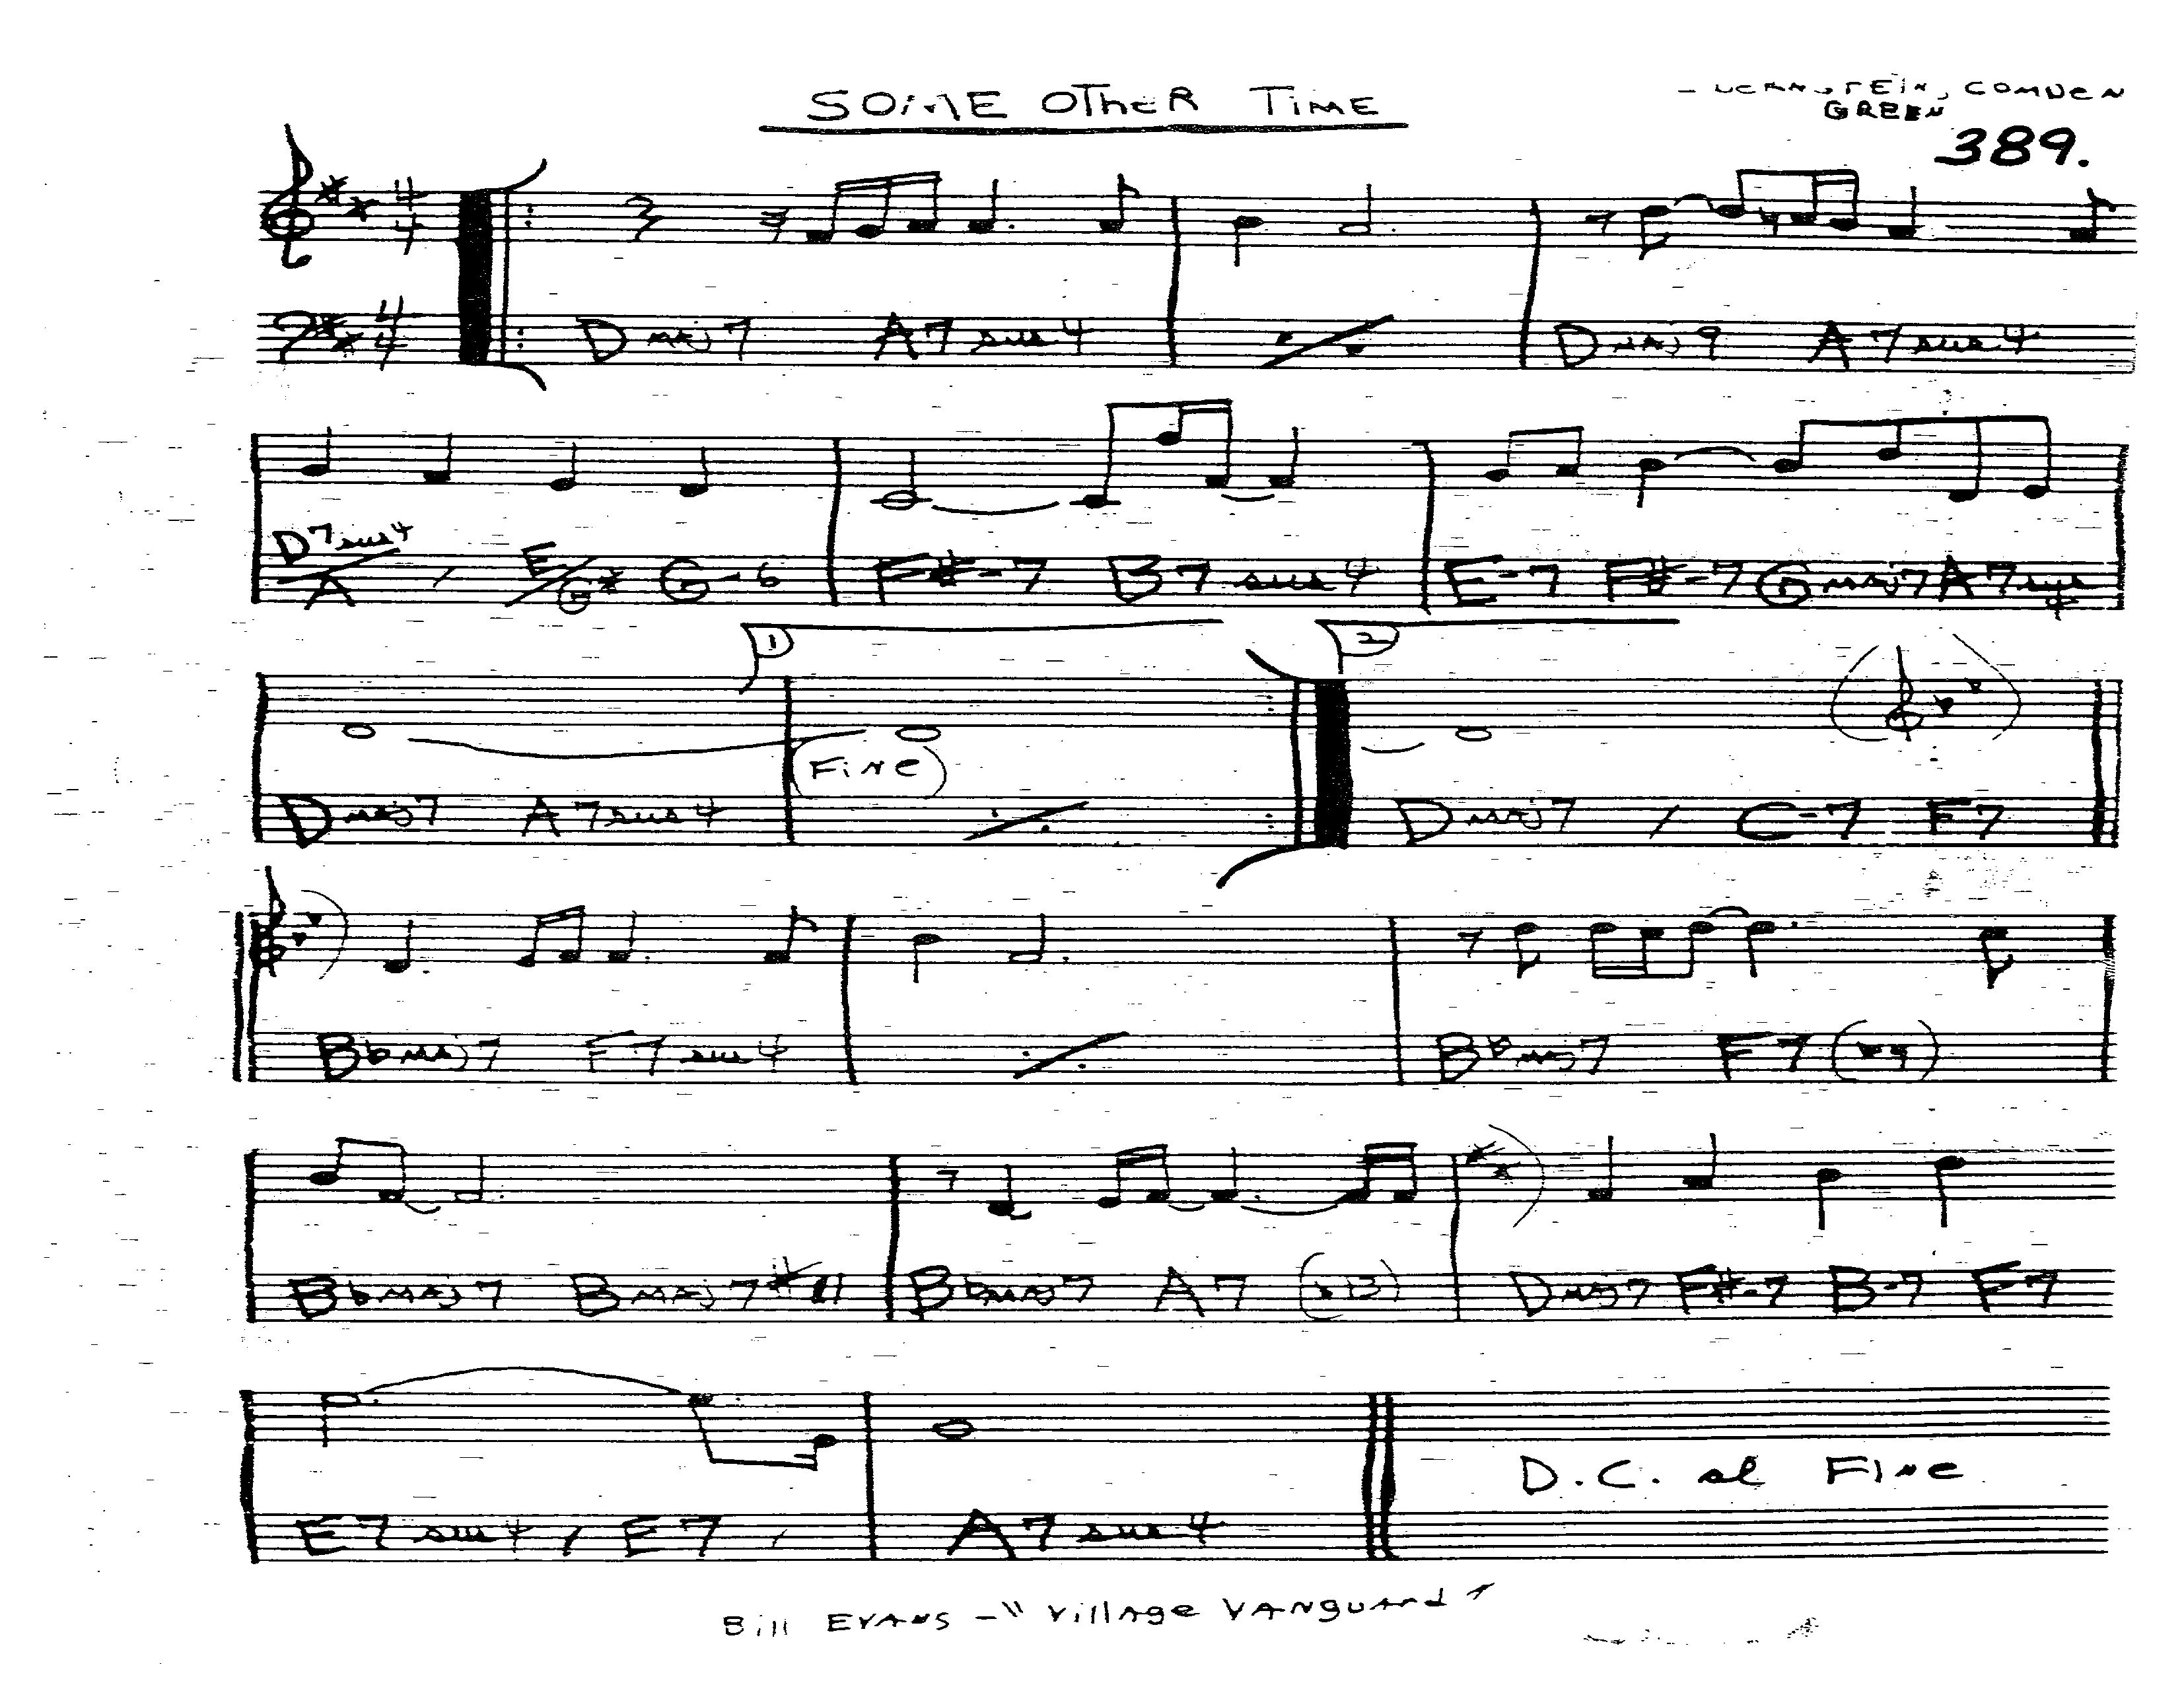 SOME OTHER TIME
COMDEN
GREEN
389.
4 4
4 4
Dmaj7 A7sus4 Dmaj9 A7sus4
D7sus4/A / E/G# G-6 F#-7 B7sus4 E-7 F#-7 Gmaj7 A7sus4
1 2
(Fine)
Dmaj7 A7sus4 Dmaj7 / C-7 F7
Bbmaj7 F7sus4 Bbmaj7 F7(b9)
Bbmaj7 Bmaj7#11 Bbmaj7 A7 (b13) Dmaj7 F#-7 B-7 F7
D.C. al Fine
E7sus4 / E7 / A7sus4
Bill Evans - "Village Vanguard"